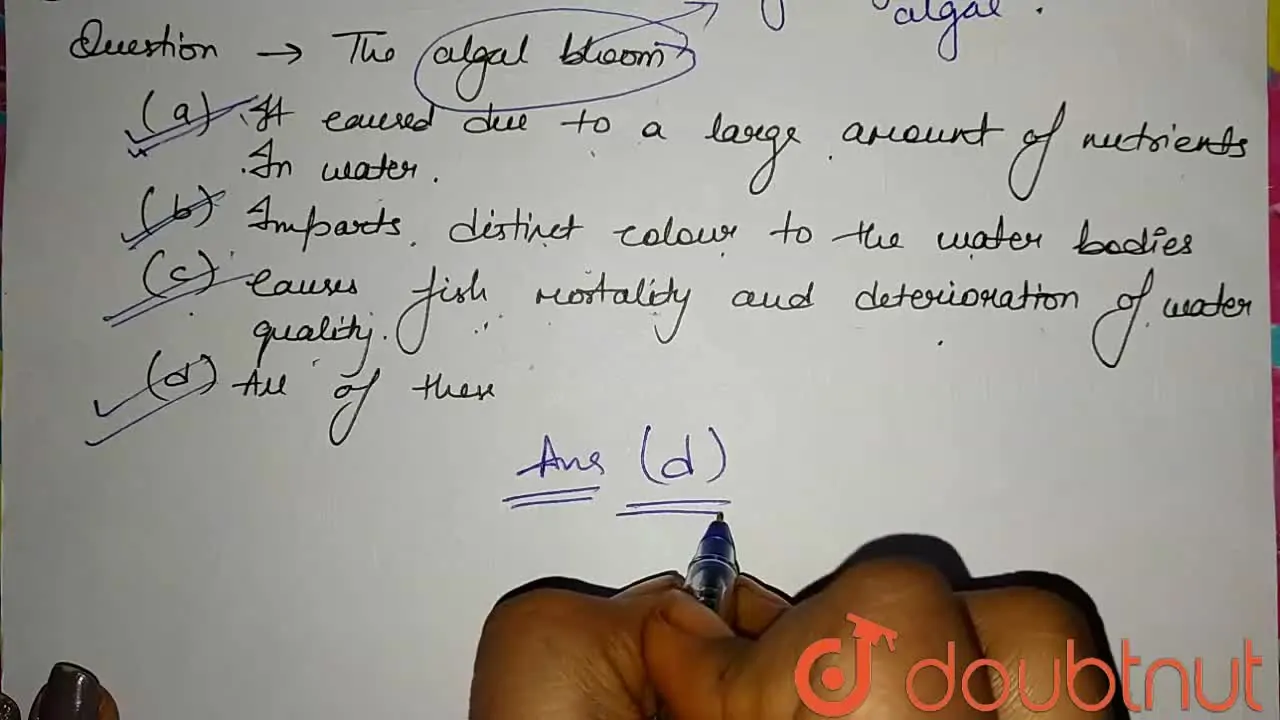 algal.
Question → The algal bloom
(a) It caused due to a large amount of nutrients
In water.
(b) Imparts distinct colour to the water bodies
(c) causes fish mortality and deterioration of water
quality.
(d) All of these
Ans (d)
doubtnut